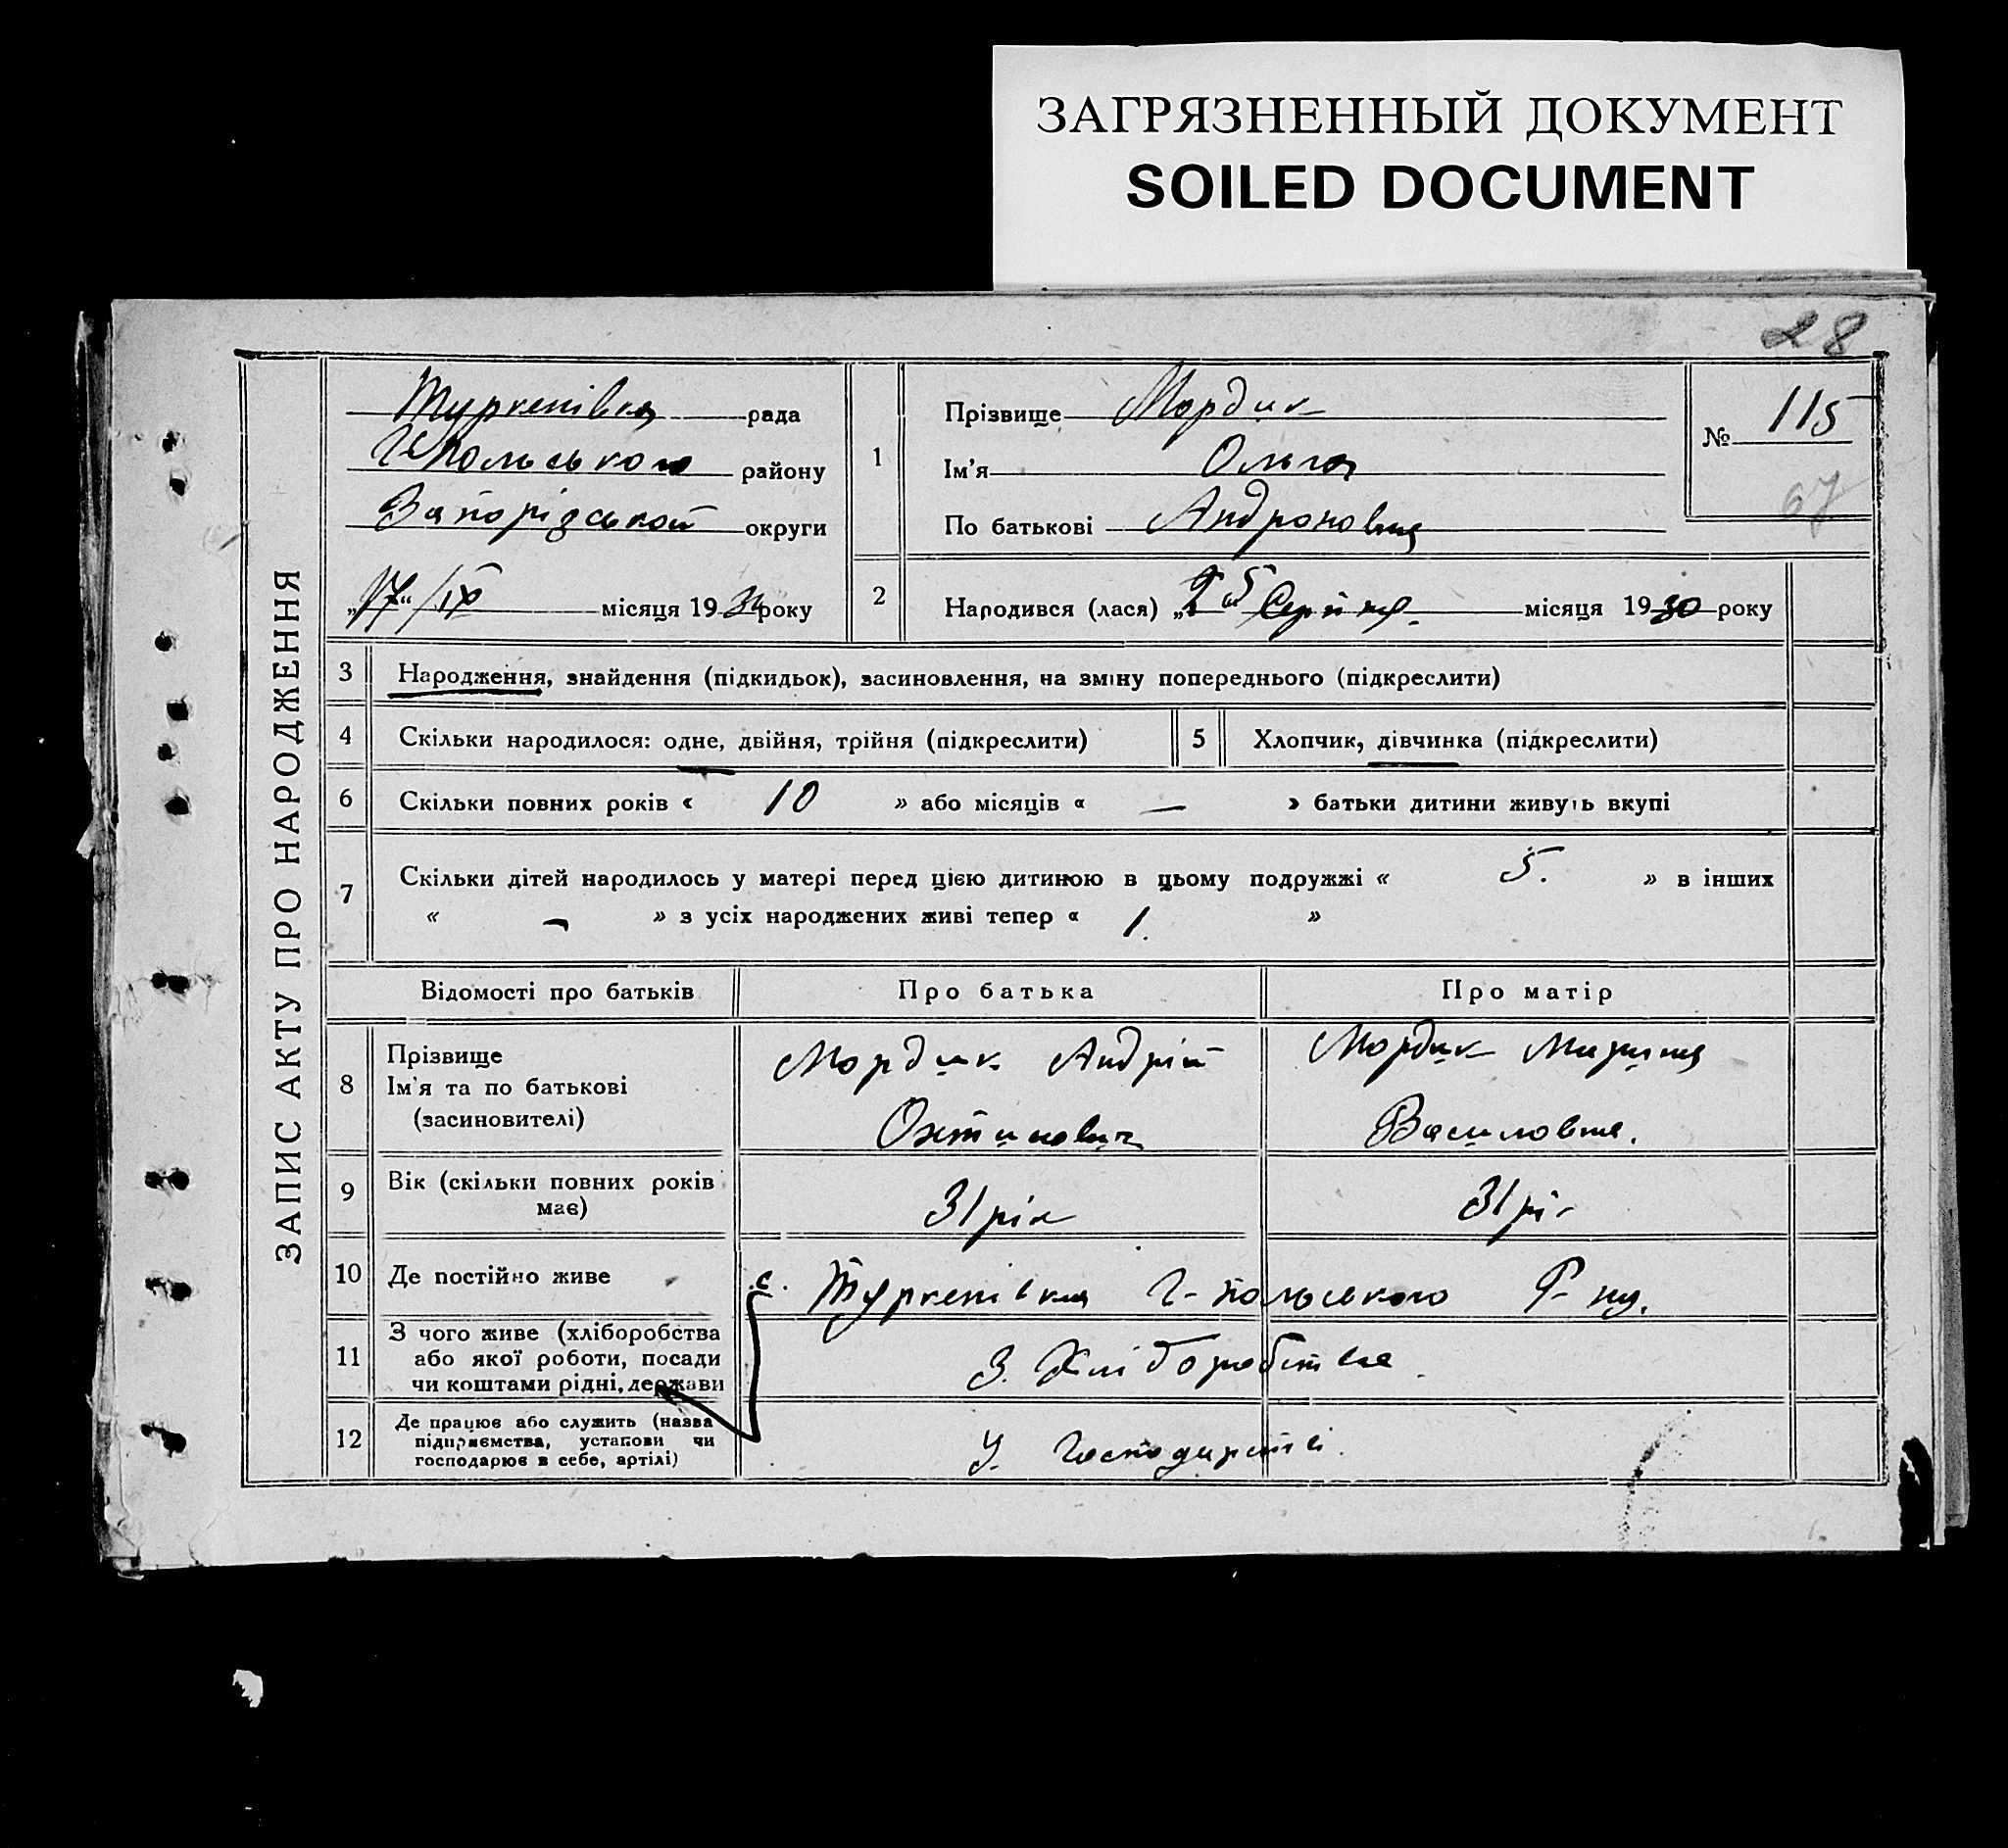 ЗАГРЯЗНЕННЫЙ ДОКУМЕНТ
SOILED DOCUMENT
28
ЗАПИС АКТУ ПРО НАРОДЖЕННЯ
Туркенівка рада
Г-Польського району
Запорізської округи
„17“/IX місяця 19 30 року
1
Прізвище Мордик
Ім'я Ольга
По батькові
№ 115
67
2
Народився (лася) „25“ Серпня місяця 1930 року
3 Народження, знайдення (підкидьок), засиновлення, на зміну попереднього (підкреслити)
4 Скільки народилося: одне, двійня, трійня (підкреслити)
5 Хлопчик, дівчинка (підкреслити)
6 Скільки повних років « 10 » або місяців « — » батьки дитини живуть вкупі
7 Скільки дітей народилось у матері перед цією дитиною в цьому подружжі « 5. » в інших
« – » з усіх народжених живі тепер « 1. »
Відомості про батьків Про батька Про матір
8 Прізвище
Ім'я та по батькові
(засиновителі)
Мордик Андрій
Мордик
Василовна.
9 Вік (скільки повних років
має)
31 рік
31 рік
10 Де постійно живе
с. Туркенівка Г-Польського Р-ну.
11 З чого живе (хліборобства
або якої роботи, посади
чи коштами рідні, держави
З. Хліборобства
12 Де працює або служить (назва
підприємства, установи чи
господарює в себе, артілі)
У Господарстві.